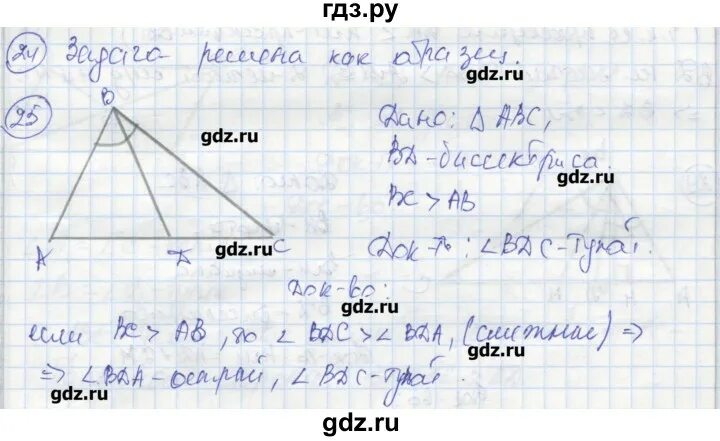 гдз.ру
24 Задача решена как образец.
gdz.ru
25
B
gdz.ru
A
D
C
gdz.ru
Дано: △ ABC,
BD - биссектриса.
gdz.ru
BC > AB
Док-ть: ∠BDC - тупой.
Док-во:
gdz.ru
если BC > AB, то ∠ BDC > ∠ BDA, (смежные) ⇒
⇒ ∠BDA - острый, ∠ BDC - тупой.
gdz.ru
gdz.ru
gdz.ru